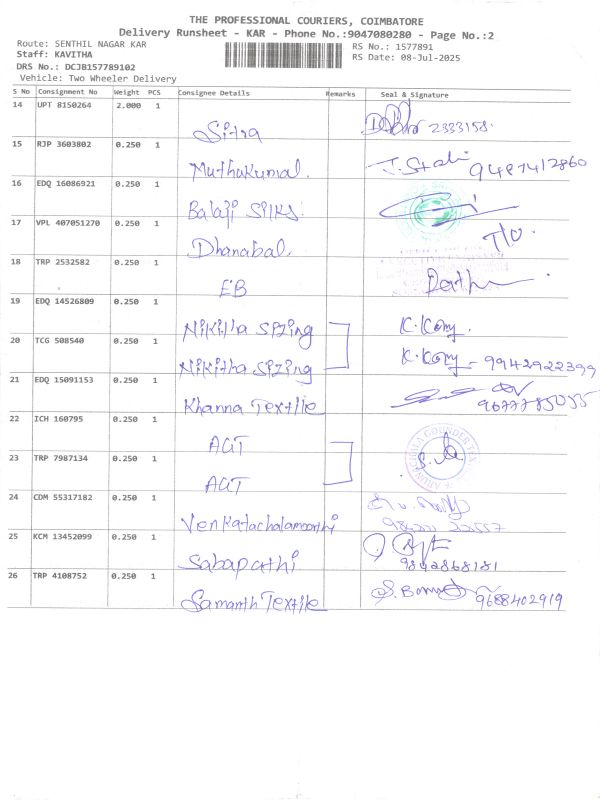 THE PROFESSIONAL COURIERS, COIMBATORE
Delivery Runsheet - KAR - Phone No.:9047080280 - Page No.:2
Route: SENTHIL NAGAR KAR
RS No.: 1577891
Staff: KAVITHA
RS Date: 08-Jul-2025
DRS No.: DCJB157789102
Vehicle: Two Wheeler Delivery
S No Consignment No Weight PCS Consignee Details Remarks Seal & Signature
14 UPT 8150264 2.000 1
Sitra 2333158
15 RJP 3603802 0.250 1
Muthukumal. 9487412860
16 EDQ 16086921 0.250 1
Balaji Silks.
17 VPL 407051270 0.250 1
Dhanabal. T/O.
18 TRP 2532582 0.250 1
EB
19 EDQ 14526809 0.250 1
Nikitha Sizing K.Kary.
20 TCG 508540 0.250 1
Nikitha Sizing K.Kary - 9942922399
21 EDQ 15091153 0.250 1
Khanna Textile
22 ICH 160795 0.250 1
AGT
23 TRP 7987134 0.250 1
AGT
24 CDM 55317182 0.250 1
Venkatachalamoorthi
25 KCM 13452099 0.250 1
Sabapathi 9842868181
26 TRP 4108752 0.250 1
Samanth Textile 9688402919